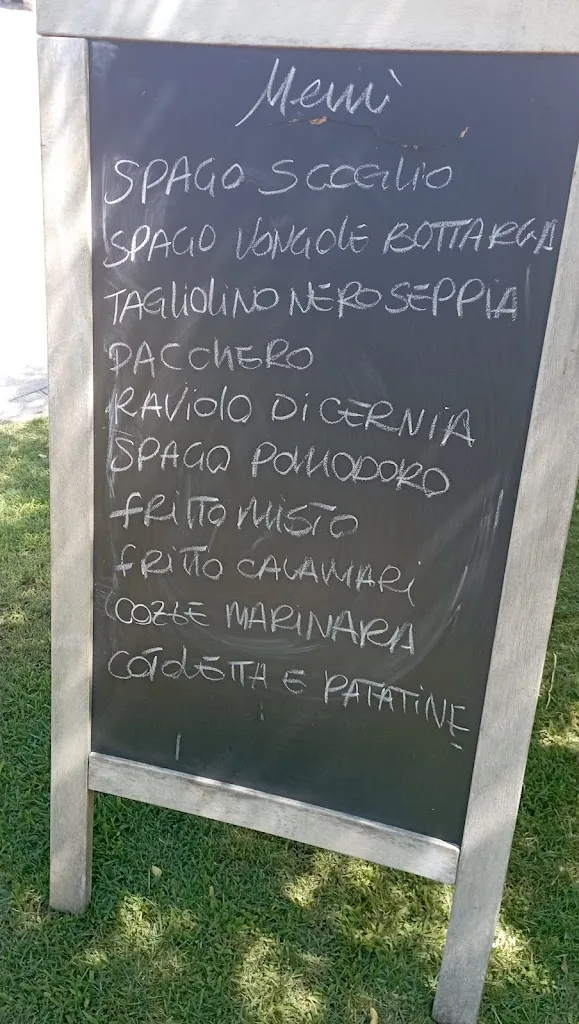 Menù
SPAGO SCOGLIO
SPAGO VONGOLE BOTTARGA
TAGLIOLINO NERO SEPPIA
PACCHERO
RAVIOLO DI CERNIA
SPAGO POMODORO
FRITTO MISTO
FRITTO CALAMARI
COZZE MARINARA
COTOLETTA E PATATINE